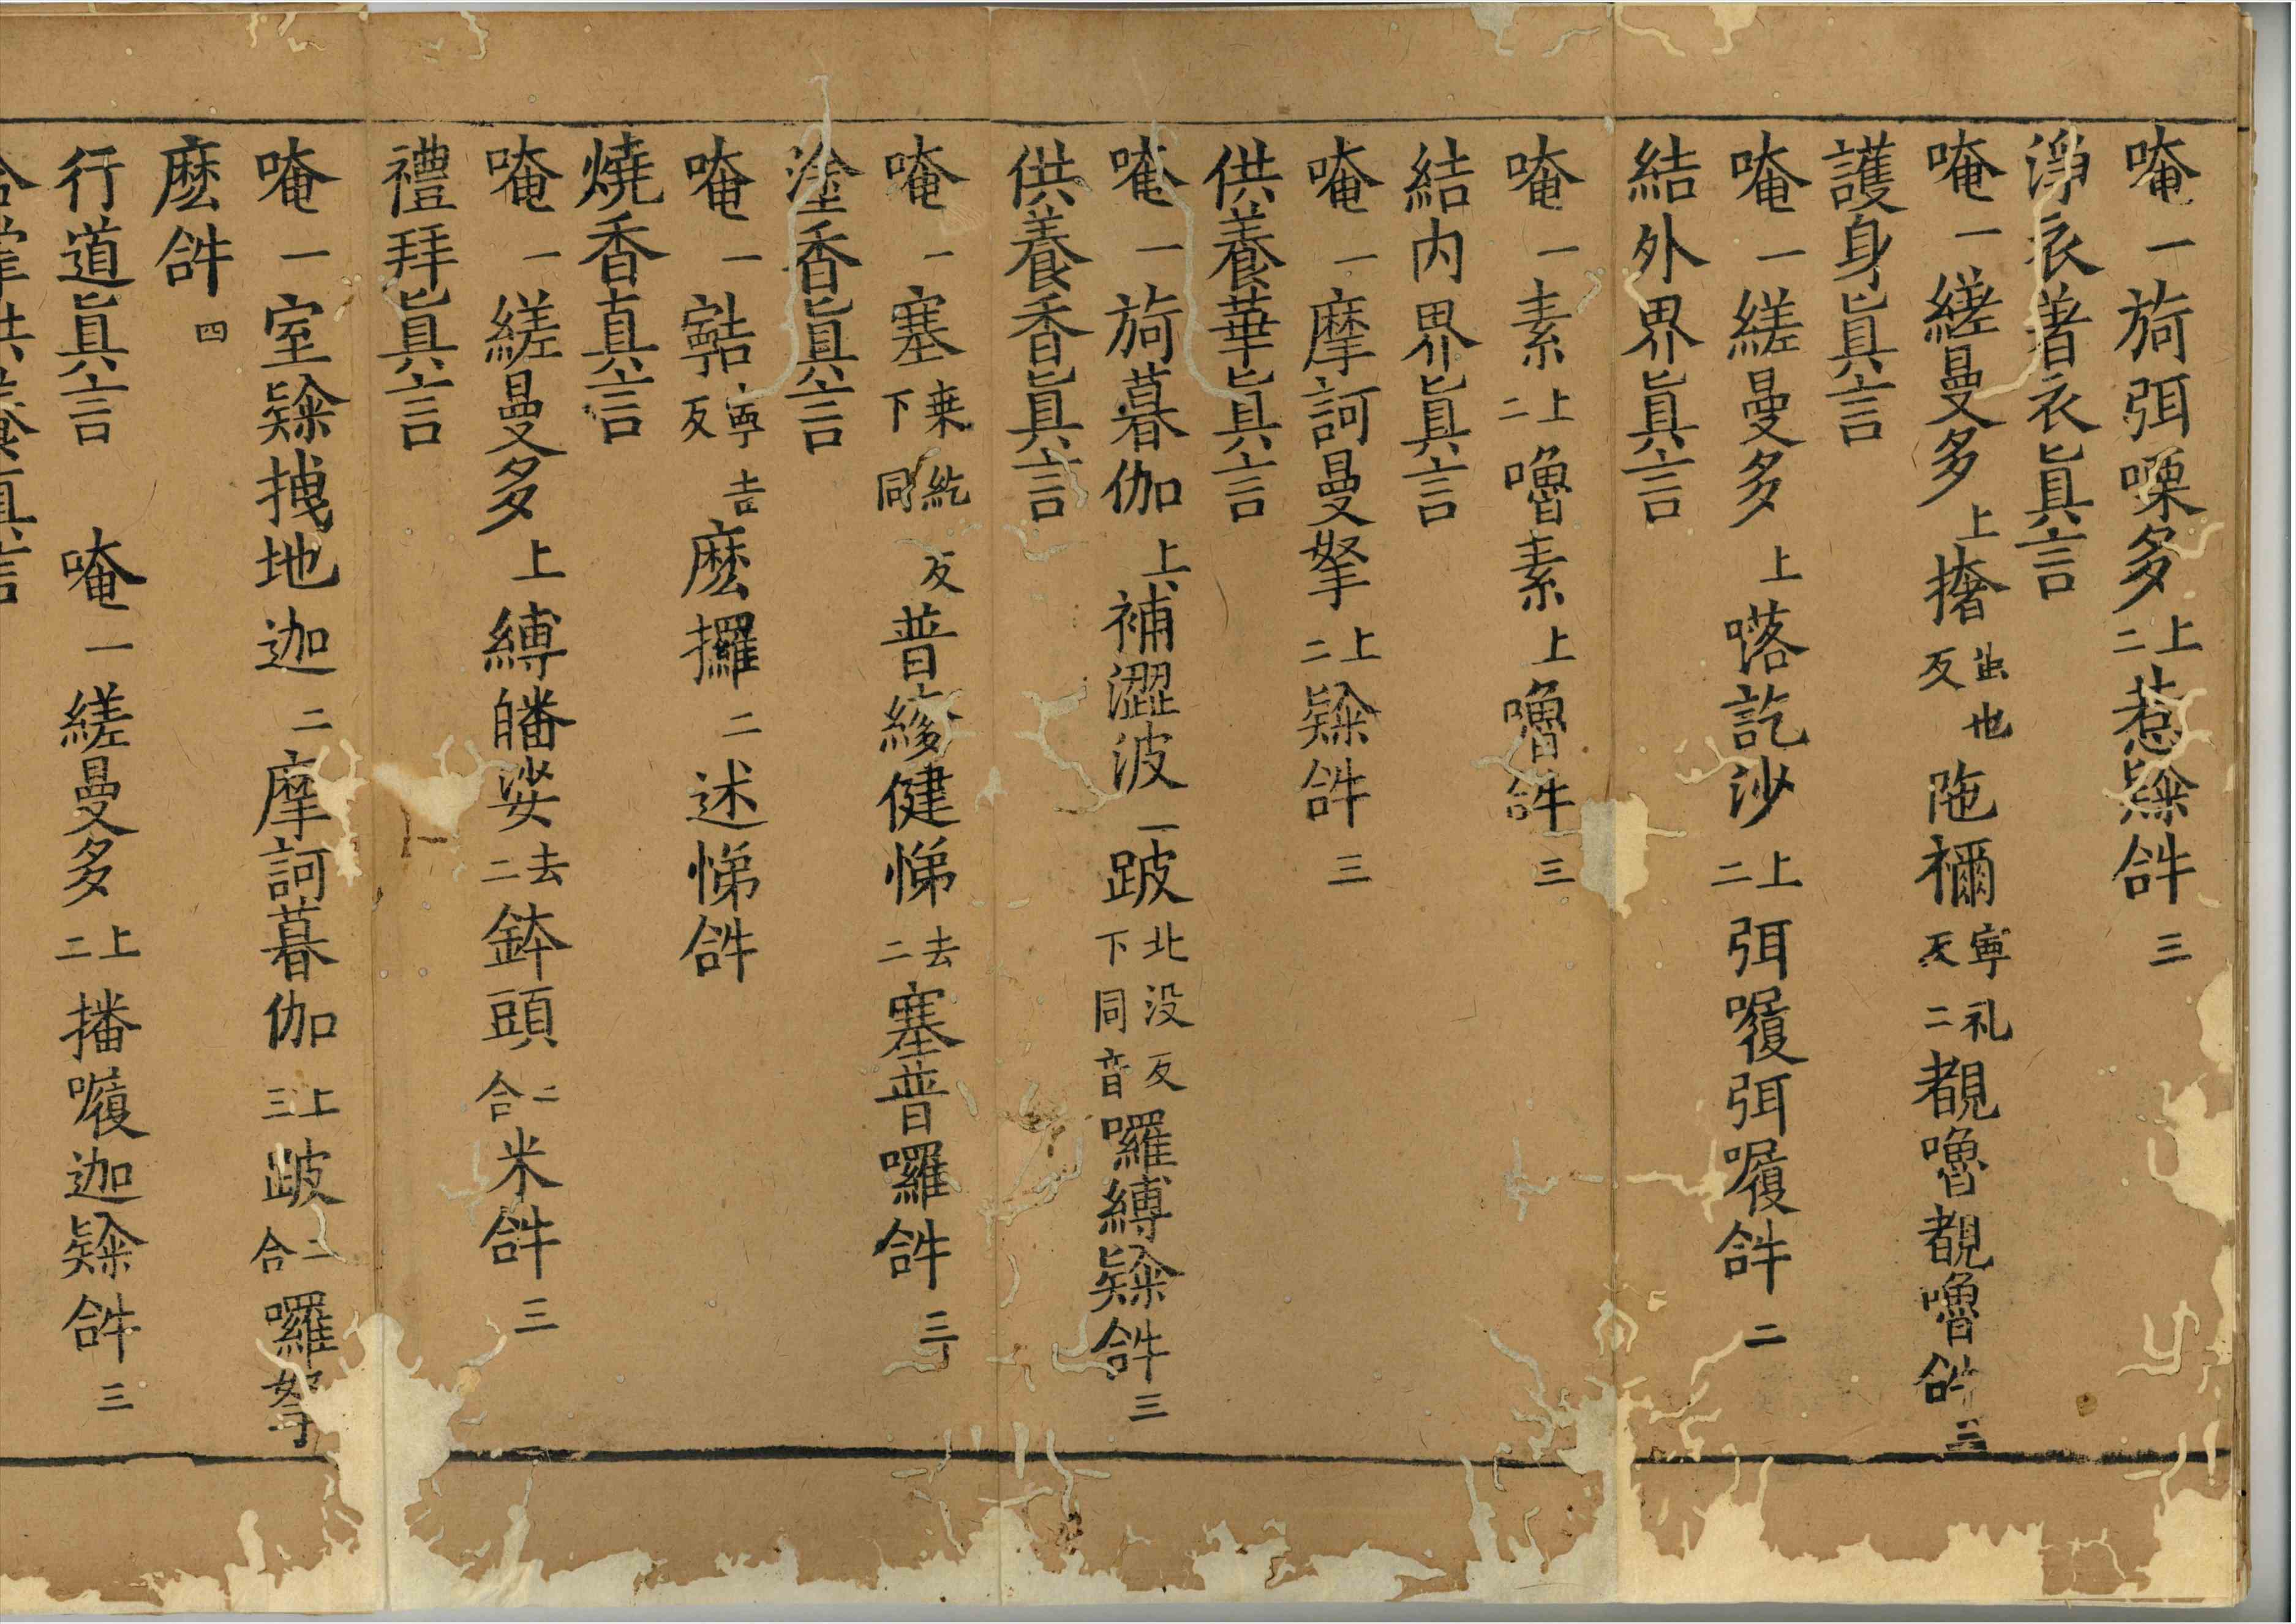 唵一旖弭㗚多上二惹𤙖𤙖三
淨衣著衣眞言
唵一縒曼多上撦蚩也反陁禰寧礼反二覩嚕覩嚕𤙖三
護身眞言
唵一縒曼多上𠹌訖沙上二弭㘑弭㘑𤙖二
結外界眞言
唵一素上二嚕素上嚕𤙖三
結内界眞言
唵一摩訶曼拏上二𤙖三
供養華眞言
唵一旖暮伽上補澀波一跛北没反下同音囉縛𤙖三
供養香眞言
唵一塞桒紇反下同普緣健悌去二塞普囉𤙖三
塗香眞言
唵一寧吉反麽攞二述悌𤙖
燒香真言
唵一縒曼多上縛皤娑去二鉢頭二合米𤙖三
禮拜眞言
唵一室拽地迦二摩訶暮伽上三跛二合囉拏
麽𤙖四
行道眞言　唵一縒曼多上二播㘑迦𤙖三
合掌供養真言